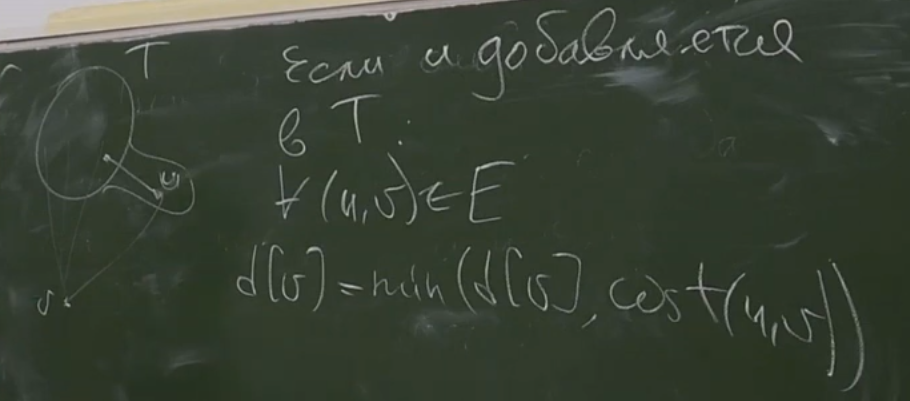 T
Если u добавляется
в T:
∀(u,v)∈E
u
d[v]=min(d[v], cost(u,v))
v